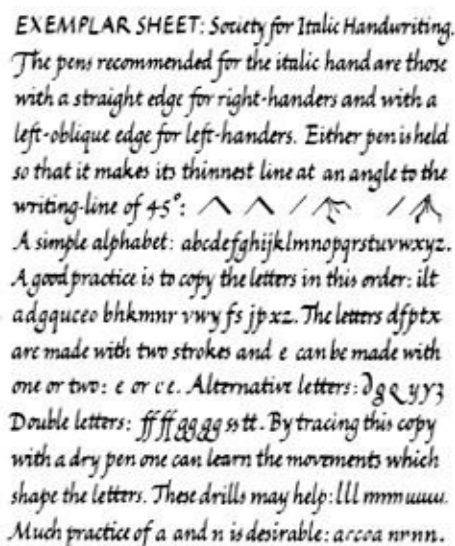 EXEMPLAR SHEET: Society for Italic Handwriting.
The pens recommended for the italic hand are those
with a straight edge for right-handers and with a
left-oblique edge for left-handers. Either pen is held
so that it makes its thinnest line at an angle to the
writing-line of 45°:
A simple alphabet: abcdefghijklmnopqrstuvwxyz.
A good practice is to copy the letters in this order: ilt
adgquceo bhkmnr vwy fs jpxz. The letters dfptx
are made with two strokes and e can be made with
one or two: e or c e. Alternative letters: ∂ g y y z
Double letters: ff ff gg gg ss tt. By tracing this copy
with a dry pen one can learn the movements which
shape the letters. These drills may help: lll mmm uuuu.
Much practice of a and n is desirable: arcoa nrnn.